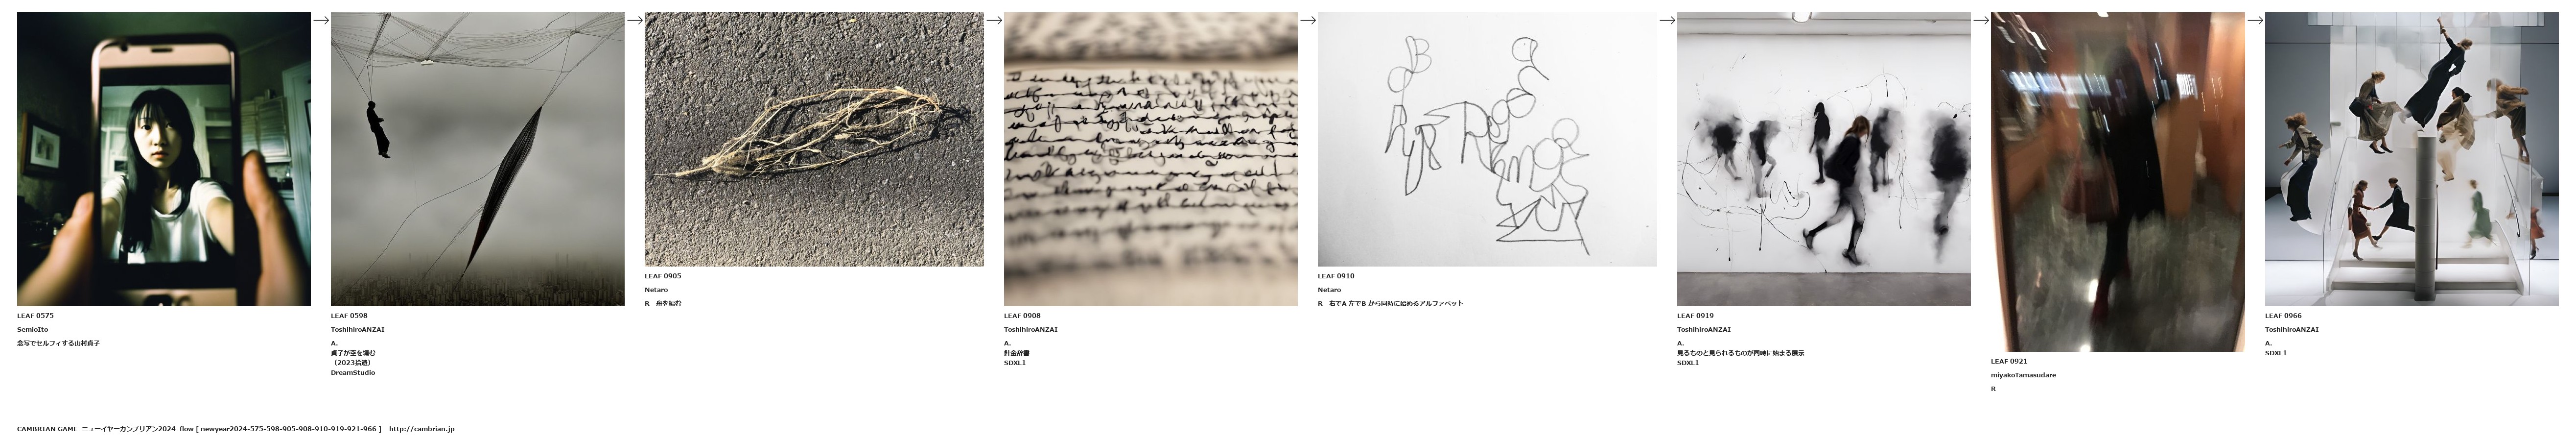 LEAF 0575
SemioIto
念写でセルフィする山村貞子
LEAF 0598
ToshihiroANZAI
A.
貞子が空を編む
（2023拾遺）
DreamStudio
LEAF 0905
Netaro
R　舟を編む
LEAF 0908
ToshihiroANZAI
A.
針金辞書
SDXL1
LEAF 0910
Netaro
R　右でA 左でB から同時に始めるアルファベット
LEAF 0919
ToshihiroANZAI
A.
見るものと見られるものが同時に始まる展示
SDXL1
LEAF 0921
miyakoTamasudare
R
LEAF 0966
ToshihiroANZAI
A.
SDXL1
CAMBRIAN GAME ニューイヤーカンブリアン2024 flow [ newyear2024-575-598-905-908-910-919-921-966 ] http://cambrian.jp